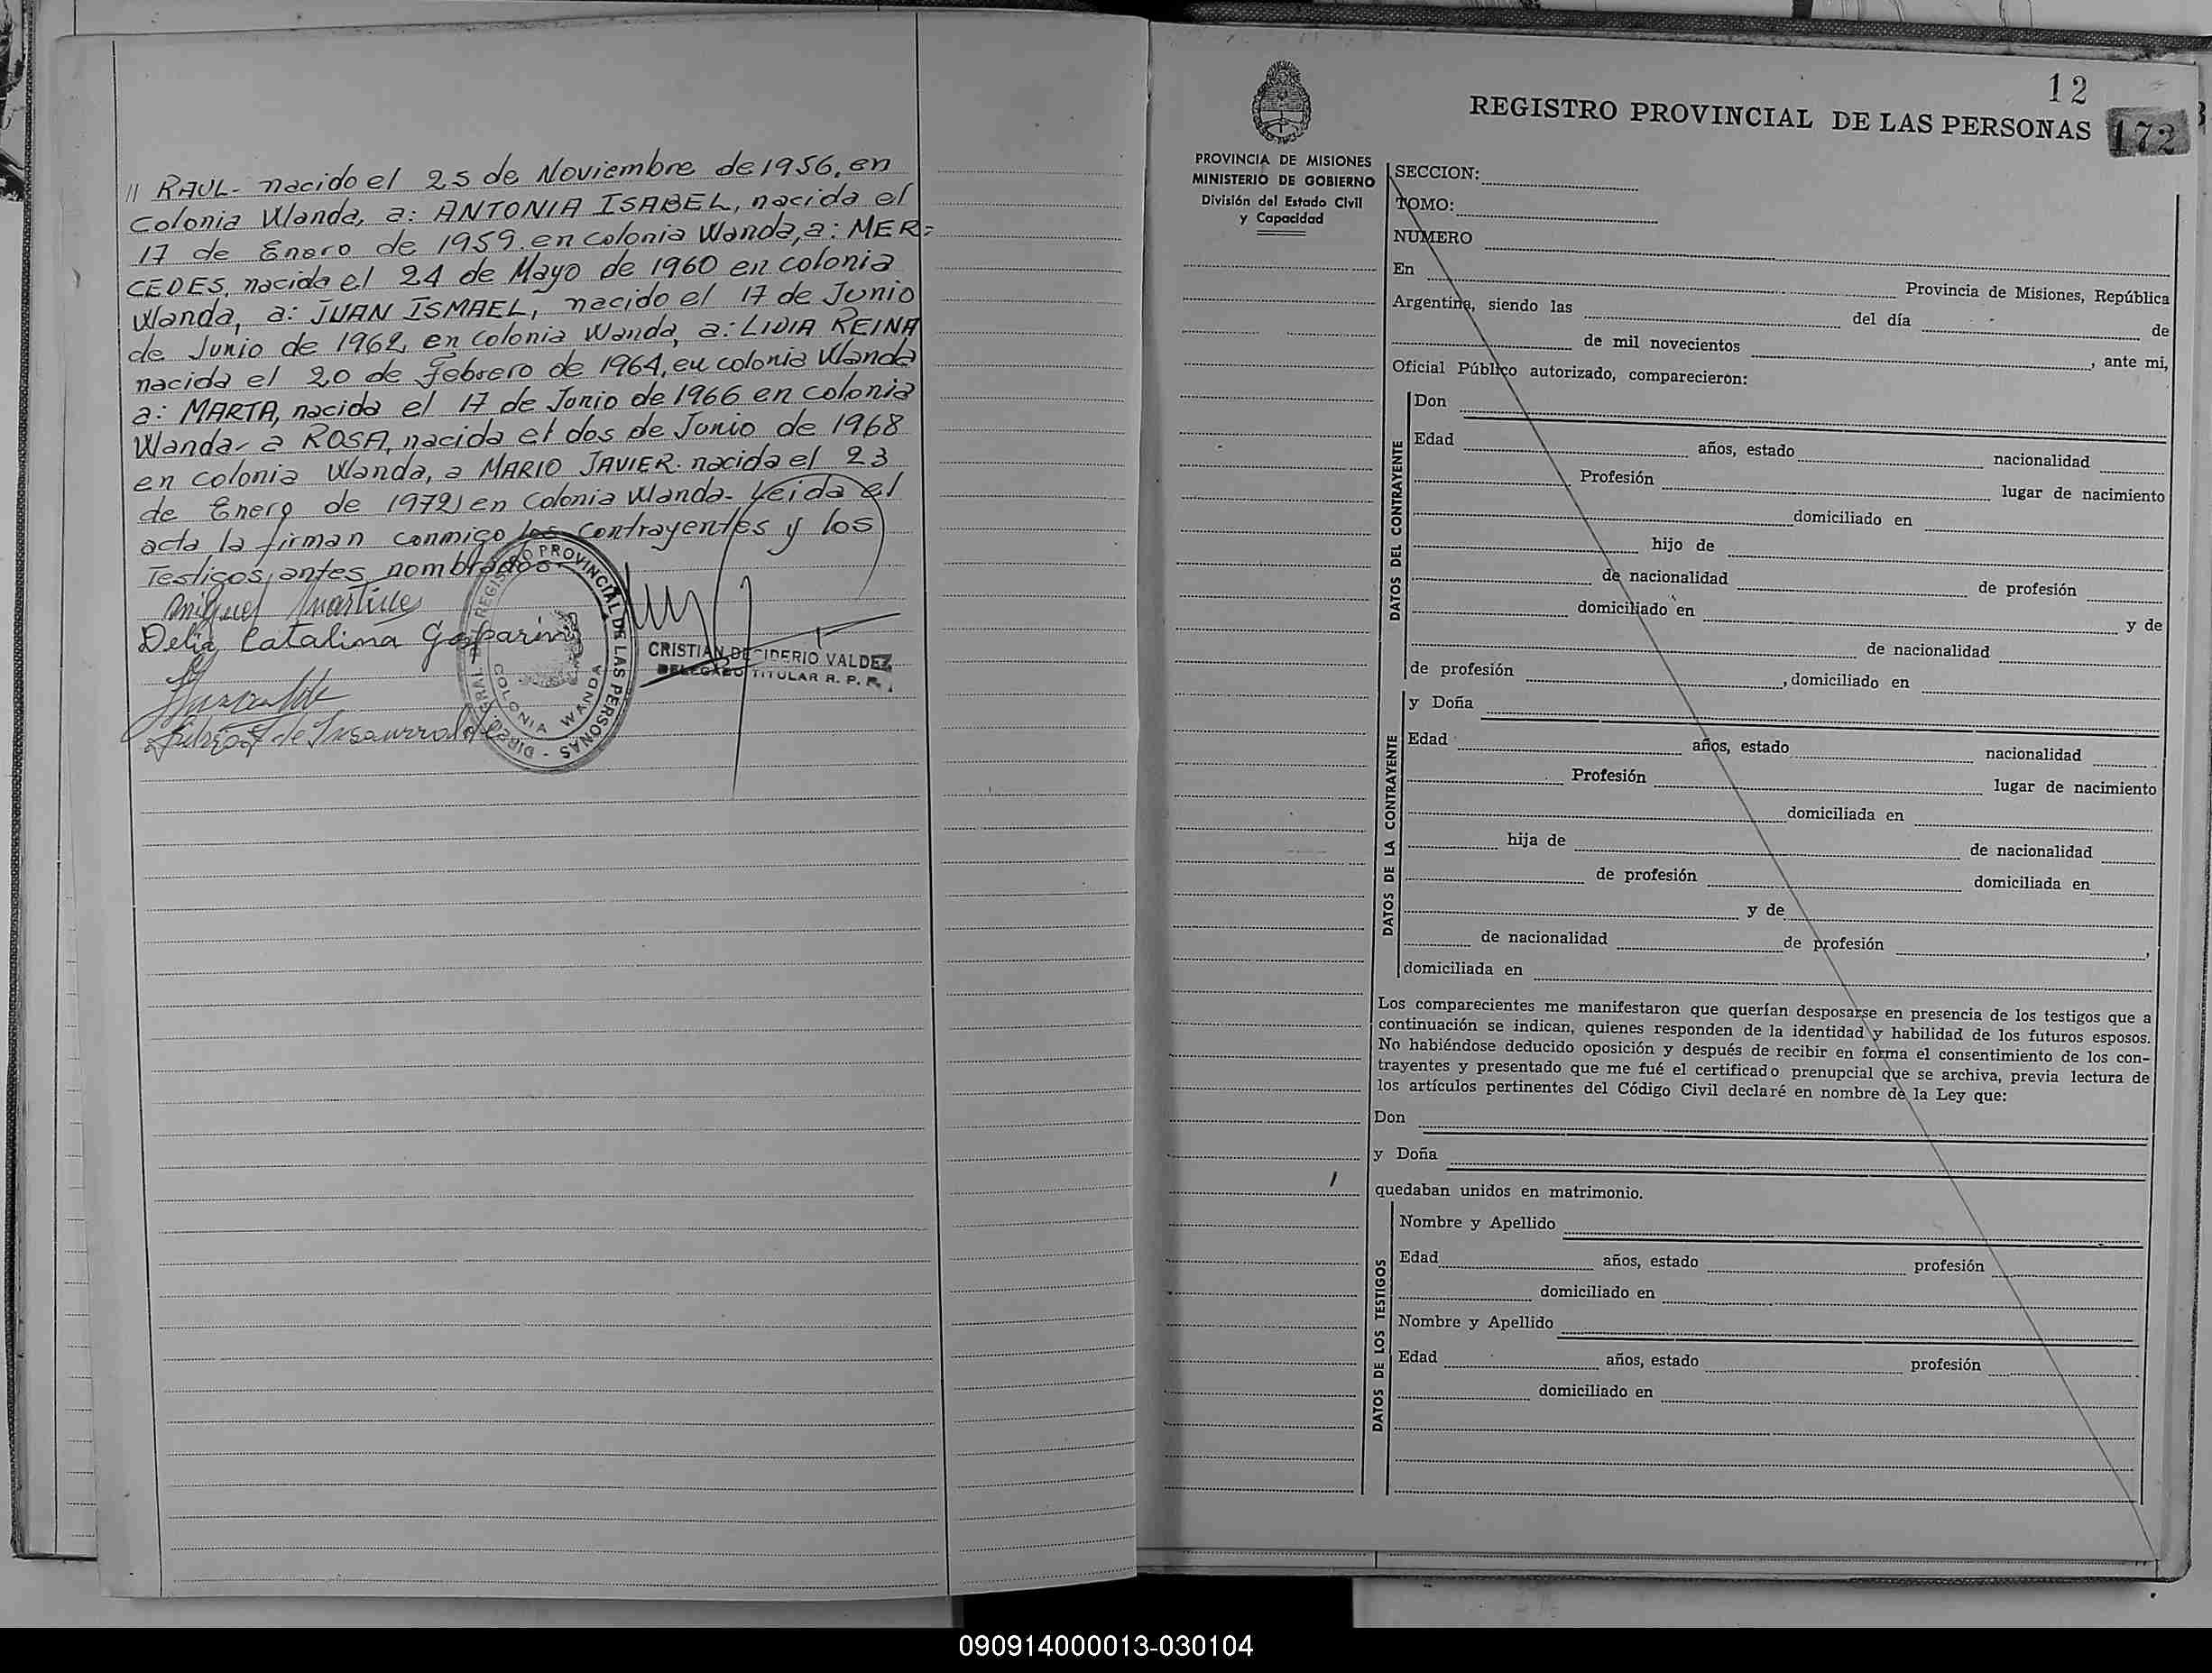 // RAUL- nacido el 25 de Noviembre de 1956, en
Colonia Wanda, a: ANTONIA ISABEL, nacida el
17 de Enero de 1959. en colonia Wanda, a: MER=
CEDES, nacida el 24 de Mayo de 1960 en colonia
Wanda, a: JUAN ISMAEL, nacido el 17 de Junio
de Junio de 1962, en colonia Wanda, a: LIDIA REINA
nacida el 20 de Febrero de 1964, en colonia Wanda
a: MARTA, nacida el 17 de Junio de 1966 en colonia
Wanda- a ROSA, nacida el dos de Junio de 1968
en colonia Wanda, a MARIO JAVIER. nacida el 23
de Enero de 1972, en Colonia Wanda- Leida el
acta la firman conmigo los contrayentes y los
Testigos antes nombrados-
Miguel Martinez
Delia Catalina Gasparini
de Insaurralde
DIREC. GRAL. REGISTRO PROVINCIAL DE LAS PERSONAS -
COLONIA WANDA
CRISTIAN DECIDERIO VALDEZ
DELEGADO TITULAR R. P. P.
12
172
REGISTRO PROVINCIAL DE LAS PERSONAS
PROVINCIA DE MISIONES
MINISTERIO DE GOBIERNO
División del Estado Civil
y Capacidad
SECCION:
TOMO:
NUMERO
En Provincia de Misiones, República
Argentina, siendo las del día de
de mil novecientos , ante mi,
Oficial Público autorizado, comparecieron:
DATOS DEL CONTRAYENTE
Don
Edad años, estado nacionalidad
Profesión lugar de nacimiento
domiciliado en
hijo de
de nacionalidad de profesión
domiciliado en y de
de nacionalidad
de profesión , domiciliado en
DATOS DE LA CONTRAYENTE
y Doña
Edad años, estado nacionalidad
Profesión lugar de nacimiento
domiciliada en
hija de de nacionalidad
de profesión domiciliada en
y de
de nacionalidad de profesión ,
domiciliada en
Los comparecientes me manifestaron que querían desposarse en presencia de los testigos que a
continuación se indican, quienes responden de la identidad y habilidad de los futuros esposos.
No habiéndose deducido oposición y después de recibir en forma el consentimiento de los con-
trayentes y presentado que me fué el certificado prenupcial que se archiva, previa lectura de
los artículos pertinentes del Código Civil declaré en nombre de la Ley que:
Don
y Doña
quedaban unidos en matrimonio.
DATOS DE LOS TESTIGOS
Nombre y Apellido
Edad años, estado profesión
domiciliado en
Nombre y Apellido
Edad años, estado profesión
domiciliado en
090914000013-030104